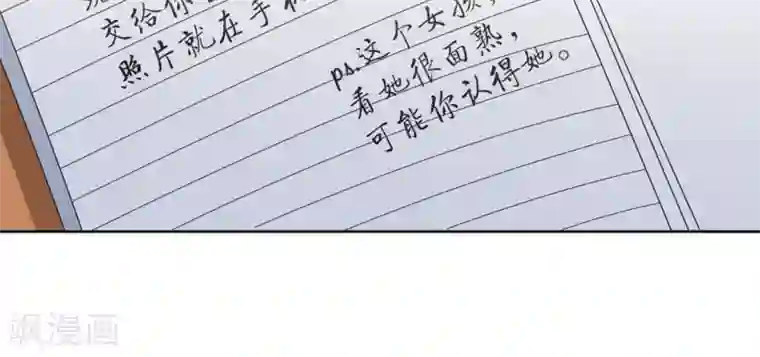 交给你
照片就在手机
ps.这个女孩,
看她很面熟,
可能你认得她。
飒漫画